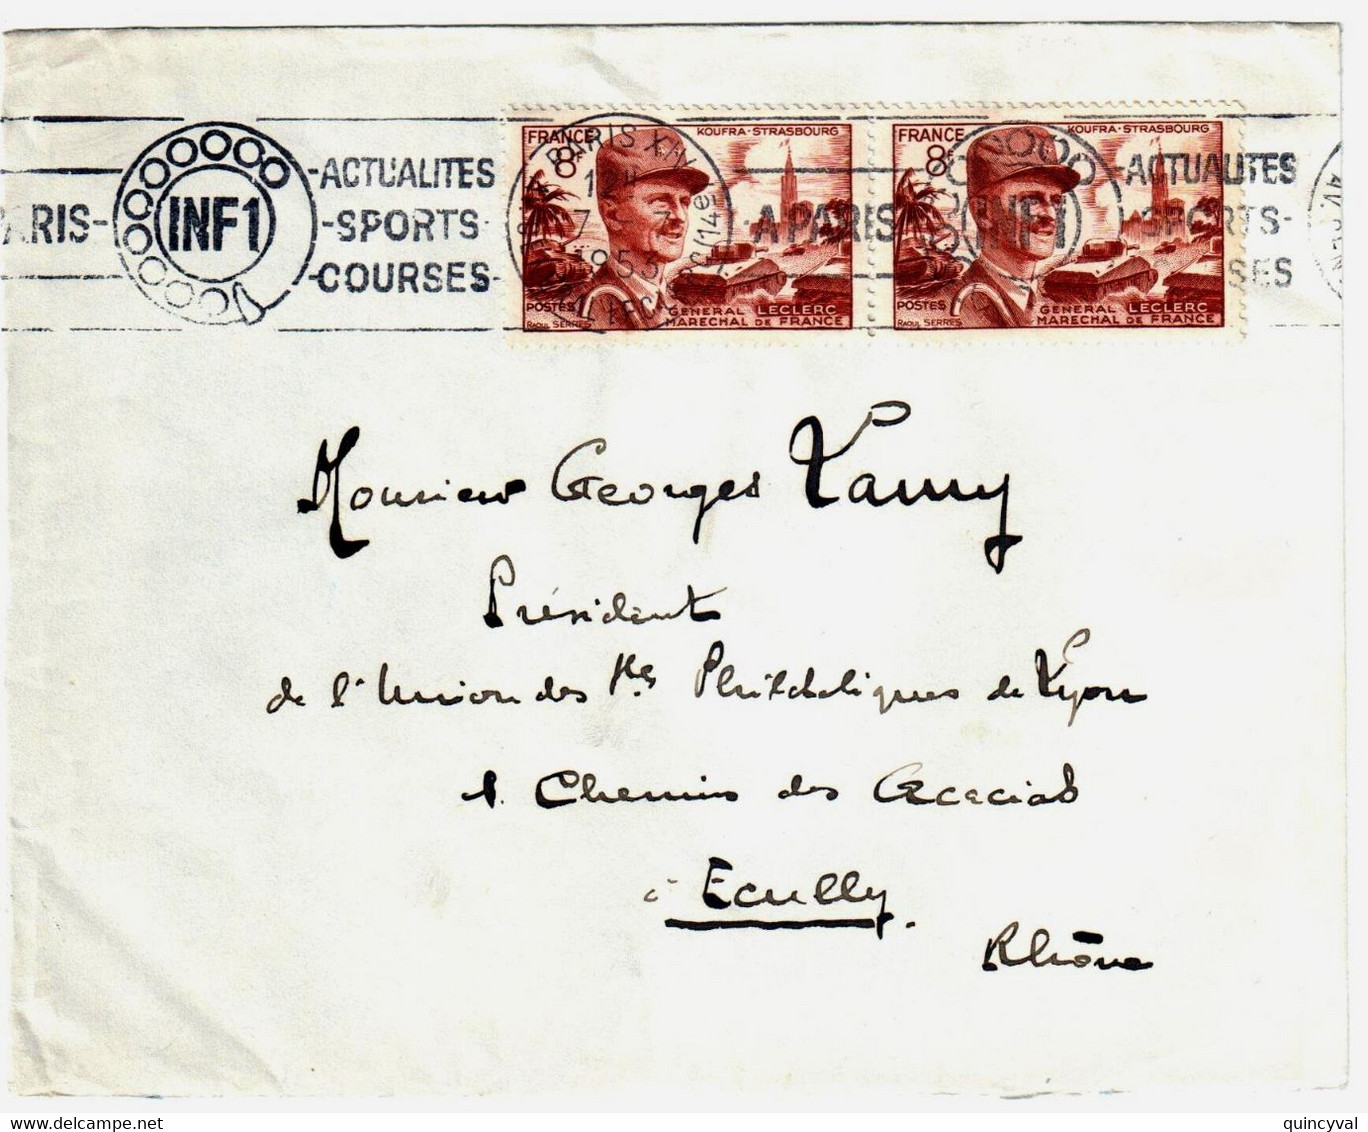 ARIS- INF1 -ACTUALITES -SPORTS- -COURSES-
PARIS XIV
12H
7
1953
AV. DU GAL LECLERC (14e)
A PARIS INF1 -ACTUALITES SPORTS- SES
FRANCE 8F KOUFRA-STRASBOURG
POSTES GÉNÉRAL LECLERC
RAOUL SERRES MARECHAL DE FRANCE
FRANCE 8F KOUFRA-STRASBOURG
POSTES GÉNÉRAL LECLERC
RAOUL SERRES MARECHAL DE FRANCE
Monsieur Georges Lamy
Président
de l'Union des Stés Philatéliques de Lyon
1. Chemin des Acacias
à Ecully.
Rhône
quincyval